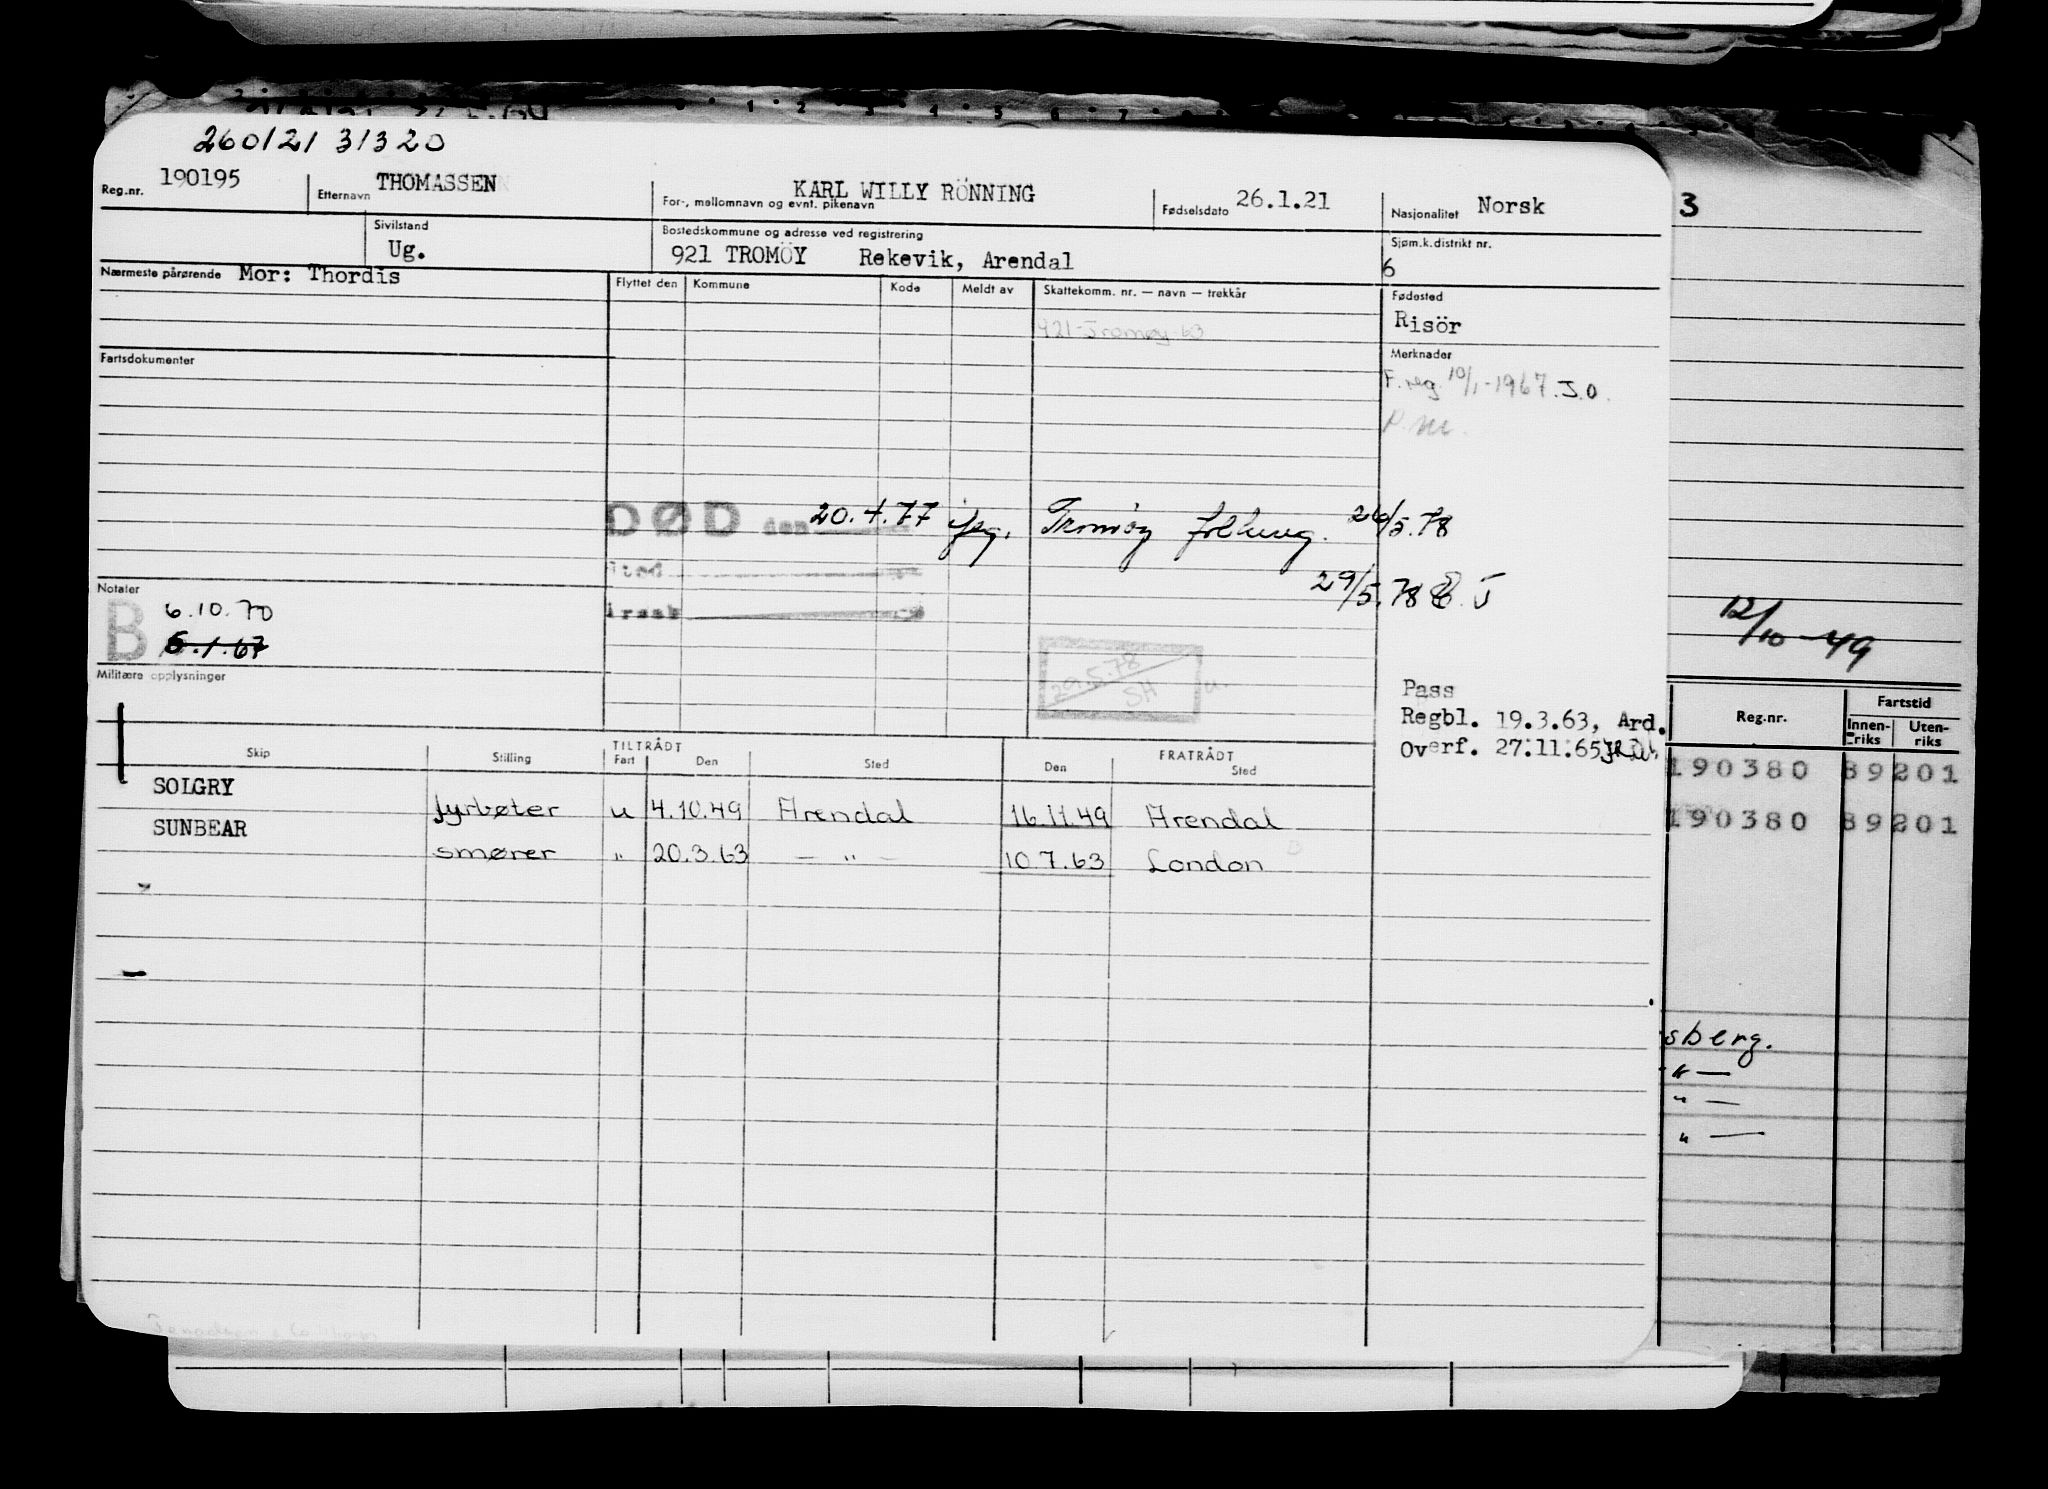 260121 31320
Reg.nr. 190195 Etternavn THOMASSEN For-, mellomnavn og evnt. pikenavn KARL WILLY RÖNNING Fødselsdato 26.1.21 Nasjonalitet Norsk
3
Sivilstand Ug. Bostedskommune og adresse ved registrering 921 TROMÖY Rekevik, Arendal Sjøm.k.distrikt nr. 6
Nærmeste pårørende Mor: Thordis
Flyttet den Kommune Kode Meldt av Skattekomm. nr. — navn — trekkår
921-Tromøy 63
Fødested
Risör
Merknader
F.reg. 10/1-1967. J.O.
P.m.
Fartsdokumenter
DØD den 20.4.77 Tromøy 26/5.78
sted
29/5.78
årsak
Notater
B 6.10.70
6.1.67
29.5.78
SH
Militære opplysninger
Pass
Regbl. 19.3.63, Ard.
Overf. 27.11.65
12/10-49
Skip Stilling TILTRÅDT Fart Den Sted FRATRÅDT Den Sted
SOLGRY fyrbøter u 4.10.49 Arendal 16.11.49 Arendal
SUNBEAR smører " 20.3.63 — " — 10.7.63 London
Reg.nr. Fartstid
Innen-riks Uten-riks
190380 89201
190380 89201
sberg.
" —
" —
" —